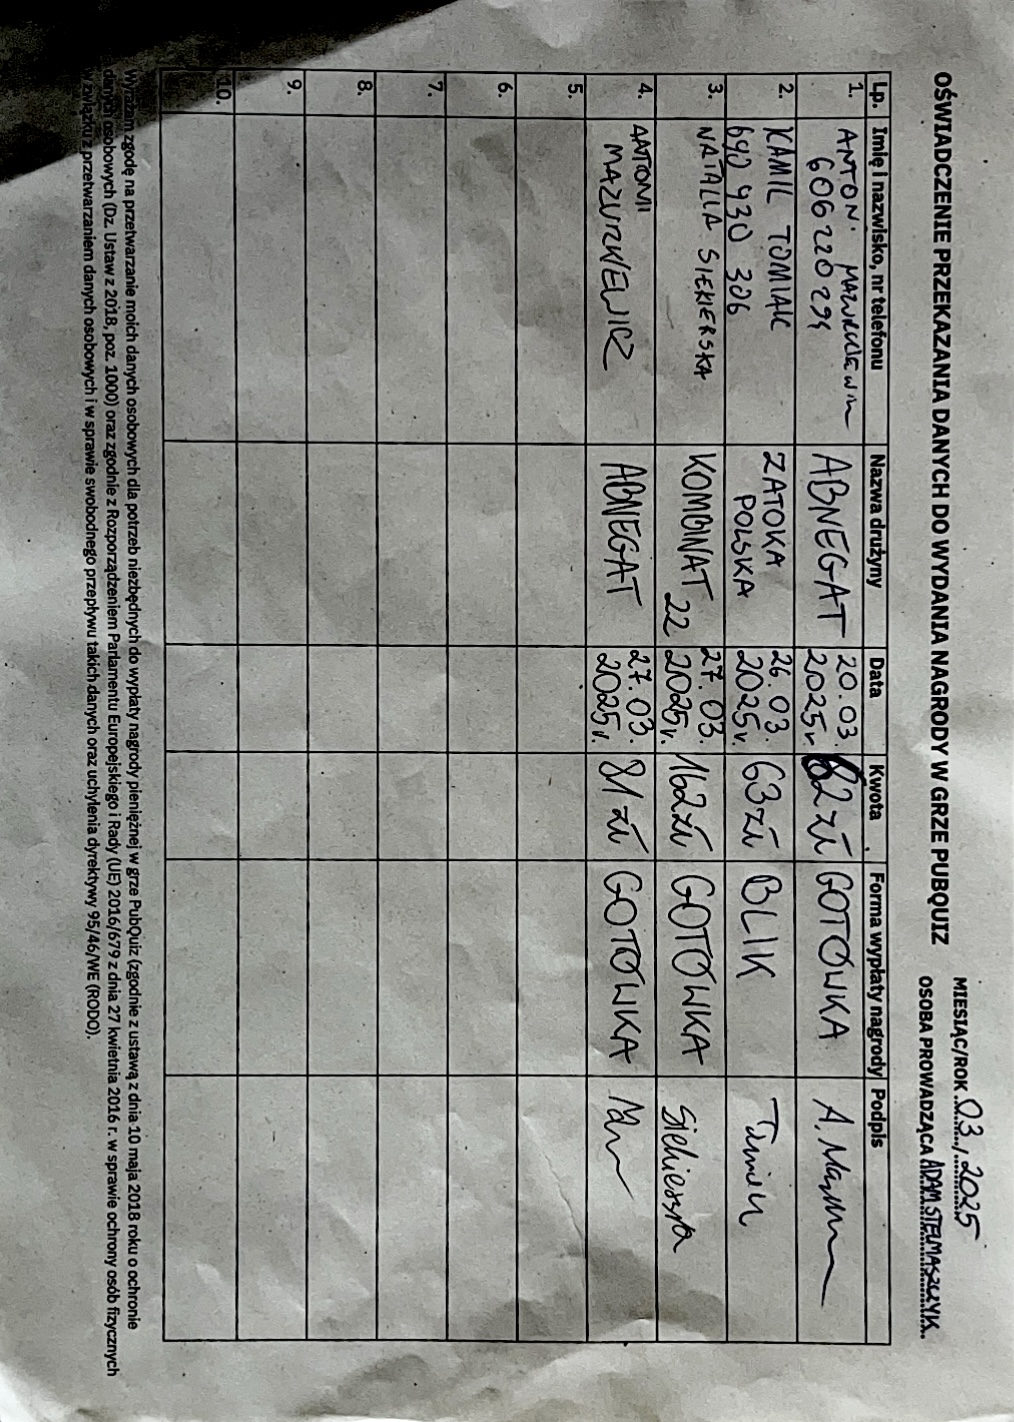 OŚWIADCZENIE PRZEKAZANIA DANYCH DO WYDANIA NAGRODY W GRZE PUBQUIZ
MIESIĄC/ROK 03/2025
OSOBA PROWADZĄCA ADAM STELMASZCZYK
Lp. Imię i nazwisko, nr telefonu Nazwa drużyny Data Kwota Forma wypłaty nagrody Podpis
1. ANTONI MAZURKIEWICZ ABNEGAT 20.03. 62 zł GOTÓWKA
606 220 294 2025r.
2. KAMIL TOMIAK ZATOKA 26.03. 63 zł BLIK
690 930 306 POLSKA 2025r.
3. NATALIA SIEKIERSKA KOMBINAT 27.03. 162 zł GOTÓWKA Siekierska
22 2025r.
4. ANTONI ABNEGAT 27.03. 81 zł GOTÓWKA
MAZURKIEWICZ 2025r.
5.
6.
7.
8.
9.
10.
Wyrażam zgodę na przetwarzanie moich danych osobowych dla potrzeb niezbędnych do wypłaty nagrody pieniężnej w grze PubQuiz (zgodnie z ustawą z dnia 10 maja 2018 roku o ochronie
danych osobowych (Dz. Ustaw z 2018, poz. 1000) oraz zgodnie z Rozporządzeniem Parlamentu Europejskiego i Rady (UE) 2016/679 z dnia 27 kwietnia 2016 r. w sprawie ochrony osób fizycznych
w związku z przetwarzaniem danych osobowych i w sprawie swobodnego przepływu takich danych oraz uchylenia dyrektywy 95/46/WE (RODO).